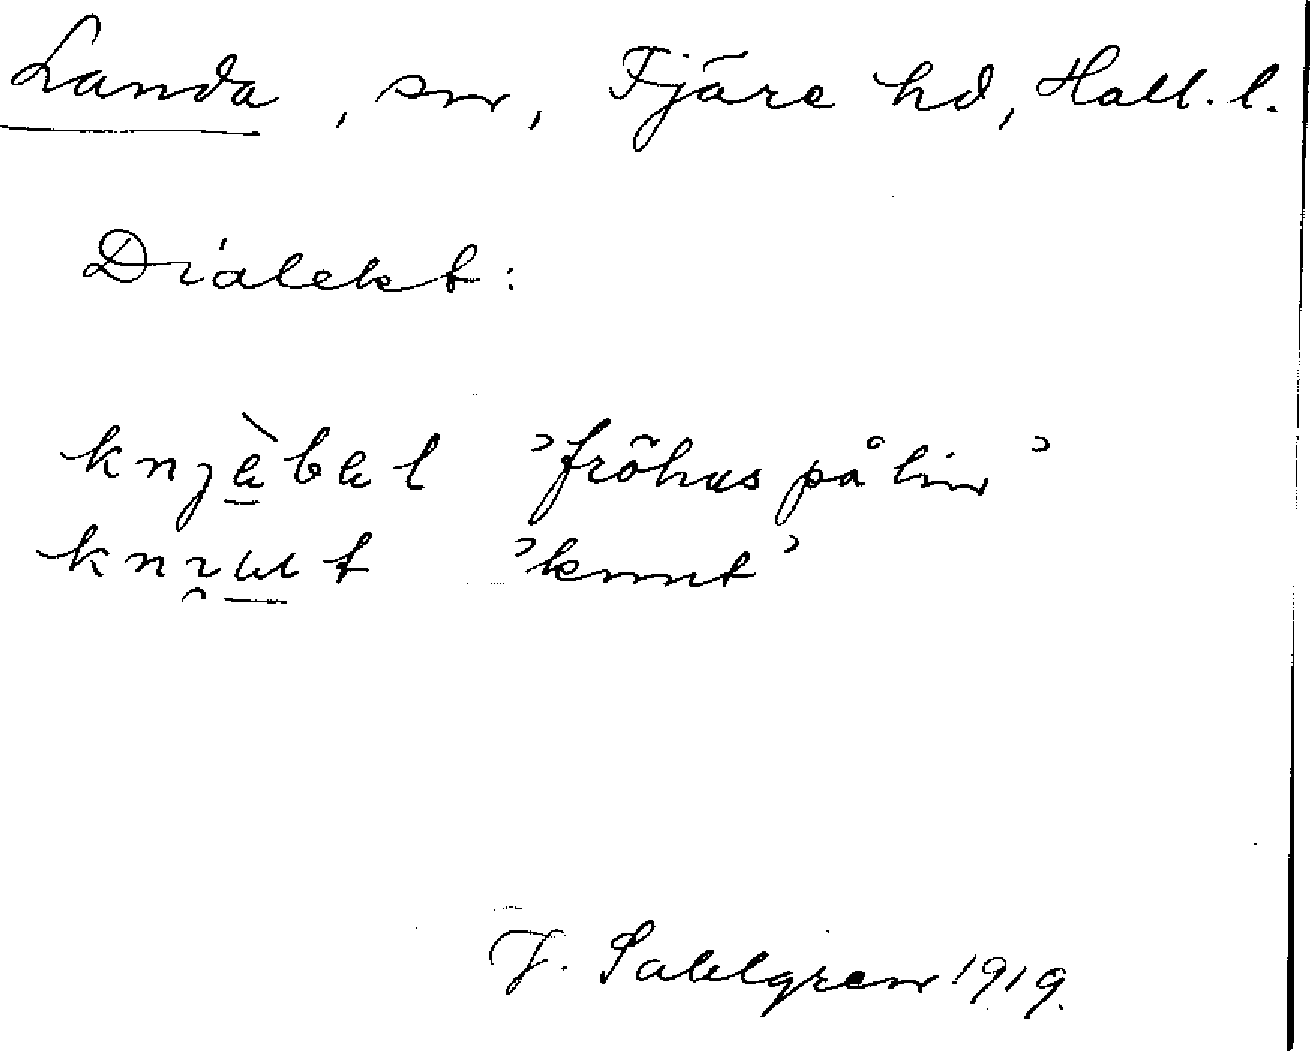 Landa, sn, Fjäre hd, Hall. l.
Dialekt:
knjè̱bal 'fröhus på lin'
knı̯u̱t 'knut'
J. Sahlgren 1919.